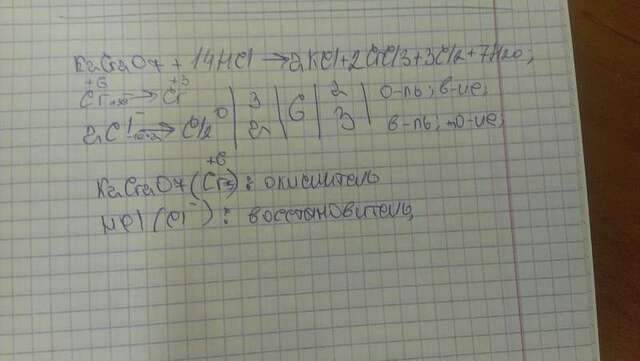 K2Cr2O7 + 14HCl → 2KCl + 2CrCl3 + 3Cl2 + 7H2O;
Cr+6 +3e → Cr+3 | 3 | 6 | 2 | о-ль; в-ие;
2Cl- -2e → Cl2 0 | 2 | | 3 | в-ль; о-ие;
K2Cr2O7 (Cr+6): окислитель
HCl (Cl-): восстановитель